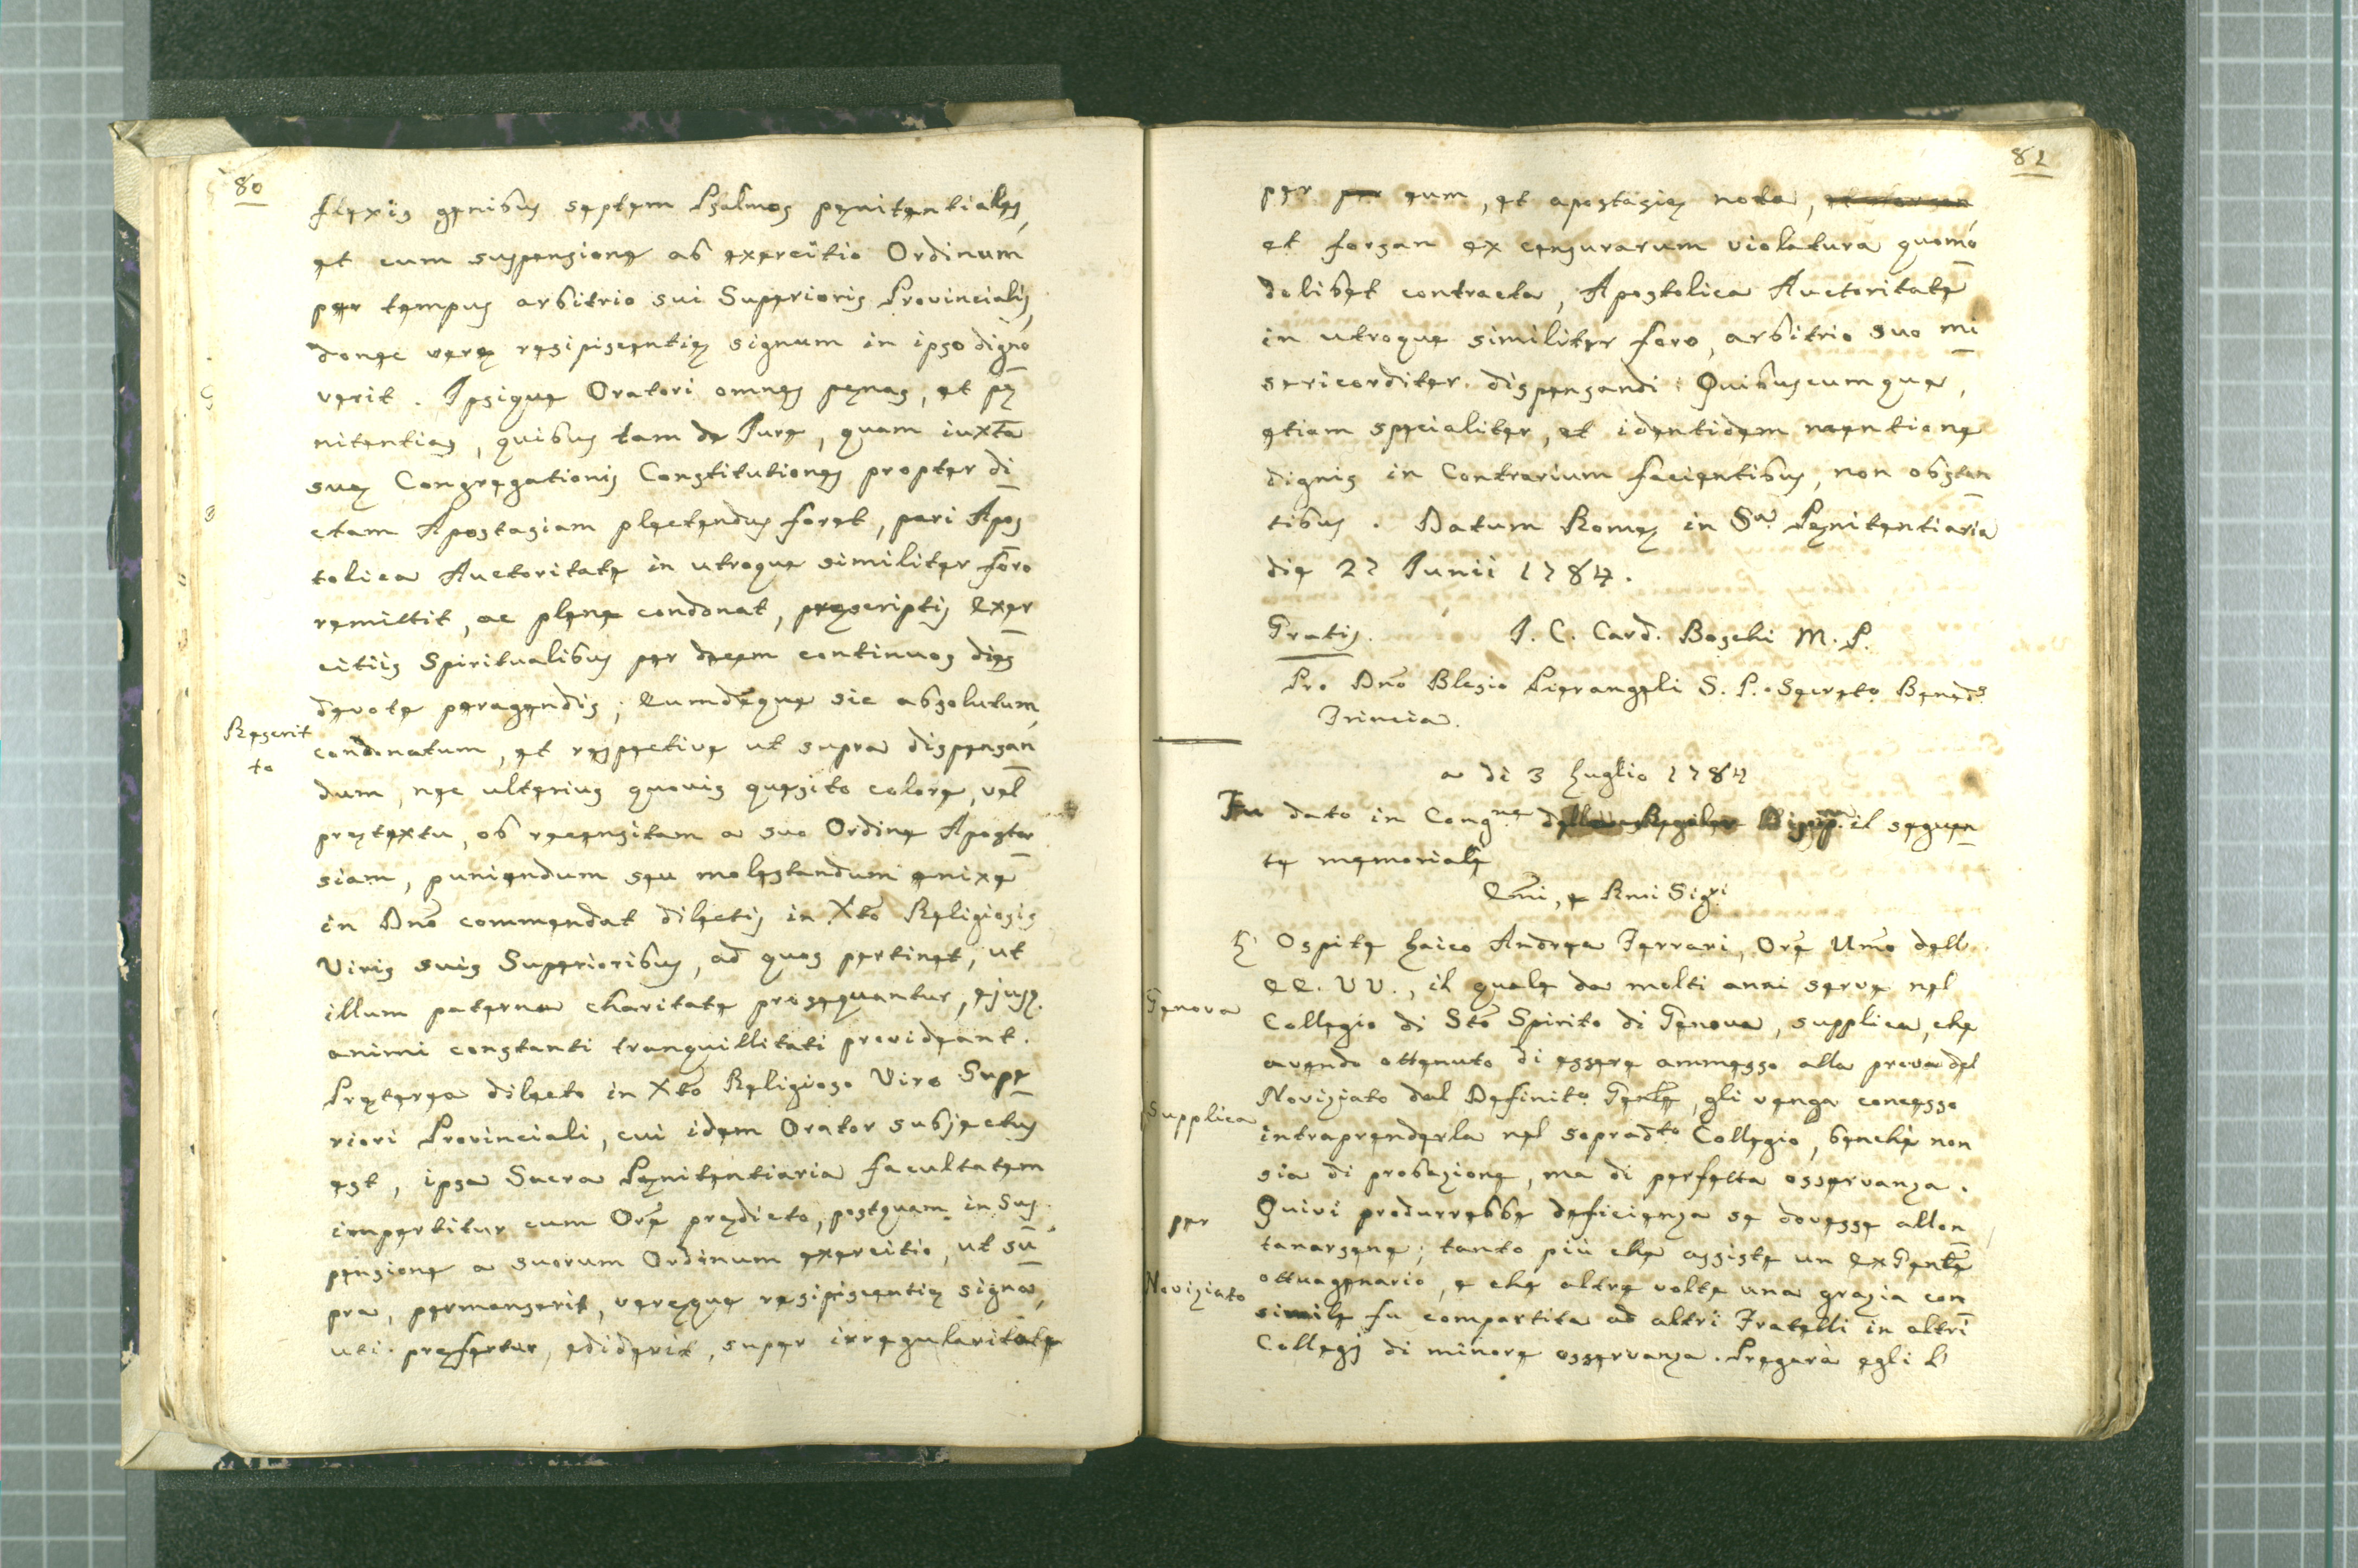 80
flexis genibus septem Psalmos pęnitentiales,
et cum suspensione ab exercitio Ordinum
per tempus arbitrio sui Superioris Provincialis,
donec verę resipiscentię signum in ipso digno
verit. Ipsique Oratori omnes pęnas, et pę
nitentias, quibus tam de Jure, quam iuxta
suę Congregationis Constitutiones propter di
ctam Apostasiam plectendus foret, pari Apos
tolica Auctoritate in utroque similiter foro
remittit, ac plene condonat, pręscriptis Exer
citiis Spiritualibus per decem continuos dies
devote peragendis; Eumdęque sic absolutum,
Rescrit
to
condonatum, et respective ut supra dispensan
dum, nec ulterius quovis quęsito colore, vel
prętextu, ob recensitam a suo Ordine Aposta
siam, puniendum seu molestandum enixe
in Dnõ commendat dilectis in Xtõ Religiosis
Viris suis Superioribus, ad quos pertinet, ut
illum paterna charitate prosequantur, ejusq.
animi constanti tranquillitati provideant.
Pręterea dilecto in Xtõ Religioso Viro Supe
riori Provinciali, cui idem Orator subjectus
est, ipsa Sacra Pęnitentiaria facultatem
impertitur cum Orẽ prędicto, postquam in Sus
pensione a suorum Ordinum exercitio, ut su
pra, permanserit, veręque resipiscentię signa,
uti pręfertur, ediderit, super irregularitate
81
per per eum, et apostasię nota,
et forsan ex censurarum violatura quomo
dolibet contracta, Apostolica Auctoritate
in utroque similiter foro, arbitrio suo mi
sericorditer dispensandi: Quibuscumque,
etiam specialiter, et identidem mentione
dignis in Contrarium facientibus, non obstan
tibus. Datum Romę in Sa. Pęnitentiaria
die 27 Junii 1784.
Gratis. J. C. Card. Boschi M. P.
Pro Dnõ Blasio Pierangeli S. P. Secreto. Bened.s
Trincia.
a di 3 Luglio 1784
Fu dato in Congne il seguen
te memoriale
Emi, e Rmi Sigri
L' Ospite Laico Andrea Ferrari, Orẽ Umõ dell
Genova
EE. VV., il quale da molti anni serve nel
Collegio di Stõ Spirito di Genova, supplica, che
avendo ottenuto di essere ammesso alla prova del
Supplica
Noviziato dal Definito. Genle, gli venga concesso
intraprenderla nel sopradto Collegio, benchè non
sia di probazione, ma di perfetta osservanza.
per
Quivi produrrebbe deficienza se dovesse allon
tanarsene; tanto più che assiste un ExGenle
Noviziato
ottuagenario, e che altre volte una grazia con
simile fu compartita ad altri Fratelli in altri
Collegj di minore osservanza. Pregarà egli l'